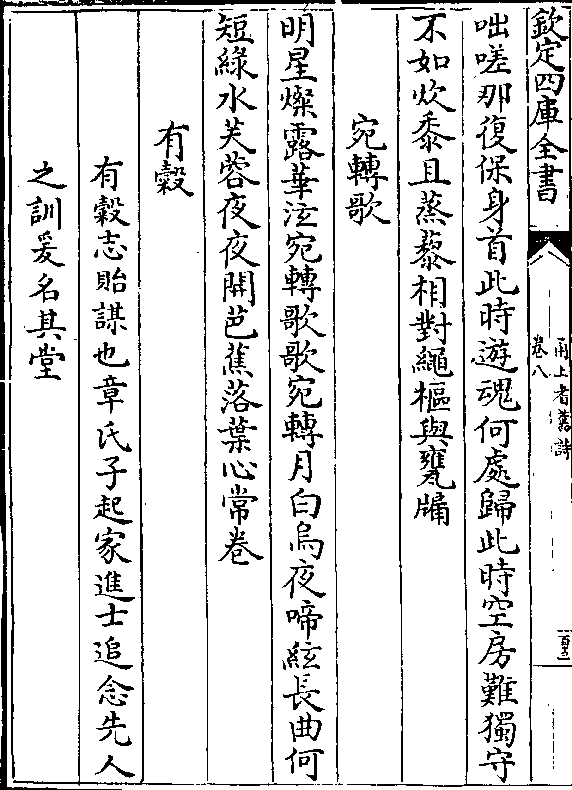 欽定四庫全書
甬上耆舊詩
卷八
咄嗟那復保身首此時遊魂何處歸此時空房難獨守
不如炊黍且蒸藜相對繩樞與甕牖
宛轉歌
明星燦露華泫宛轉歌歌宛轉月白烏夜啼絃長曲何
短綠水芙蓉夜夜開芭蕉落葉心常卷
有穀
有穀志貽謀也章氏子起家進士追念先人
之訓爰名其堂